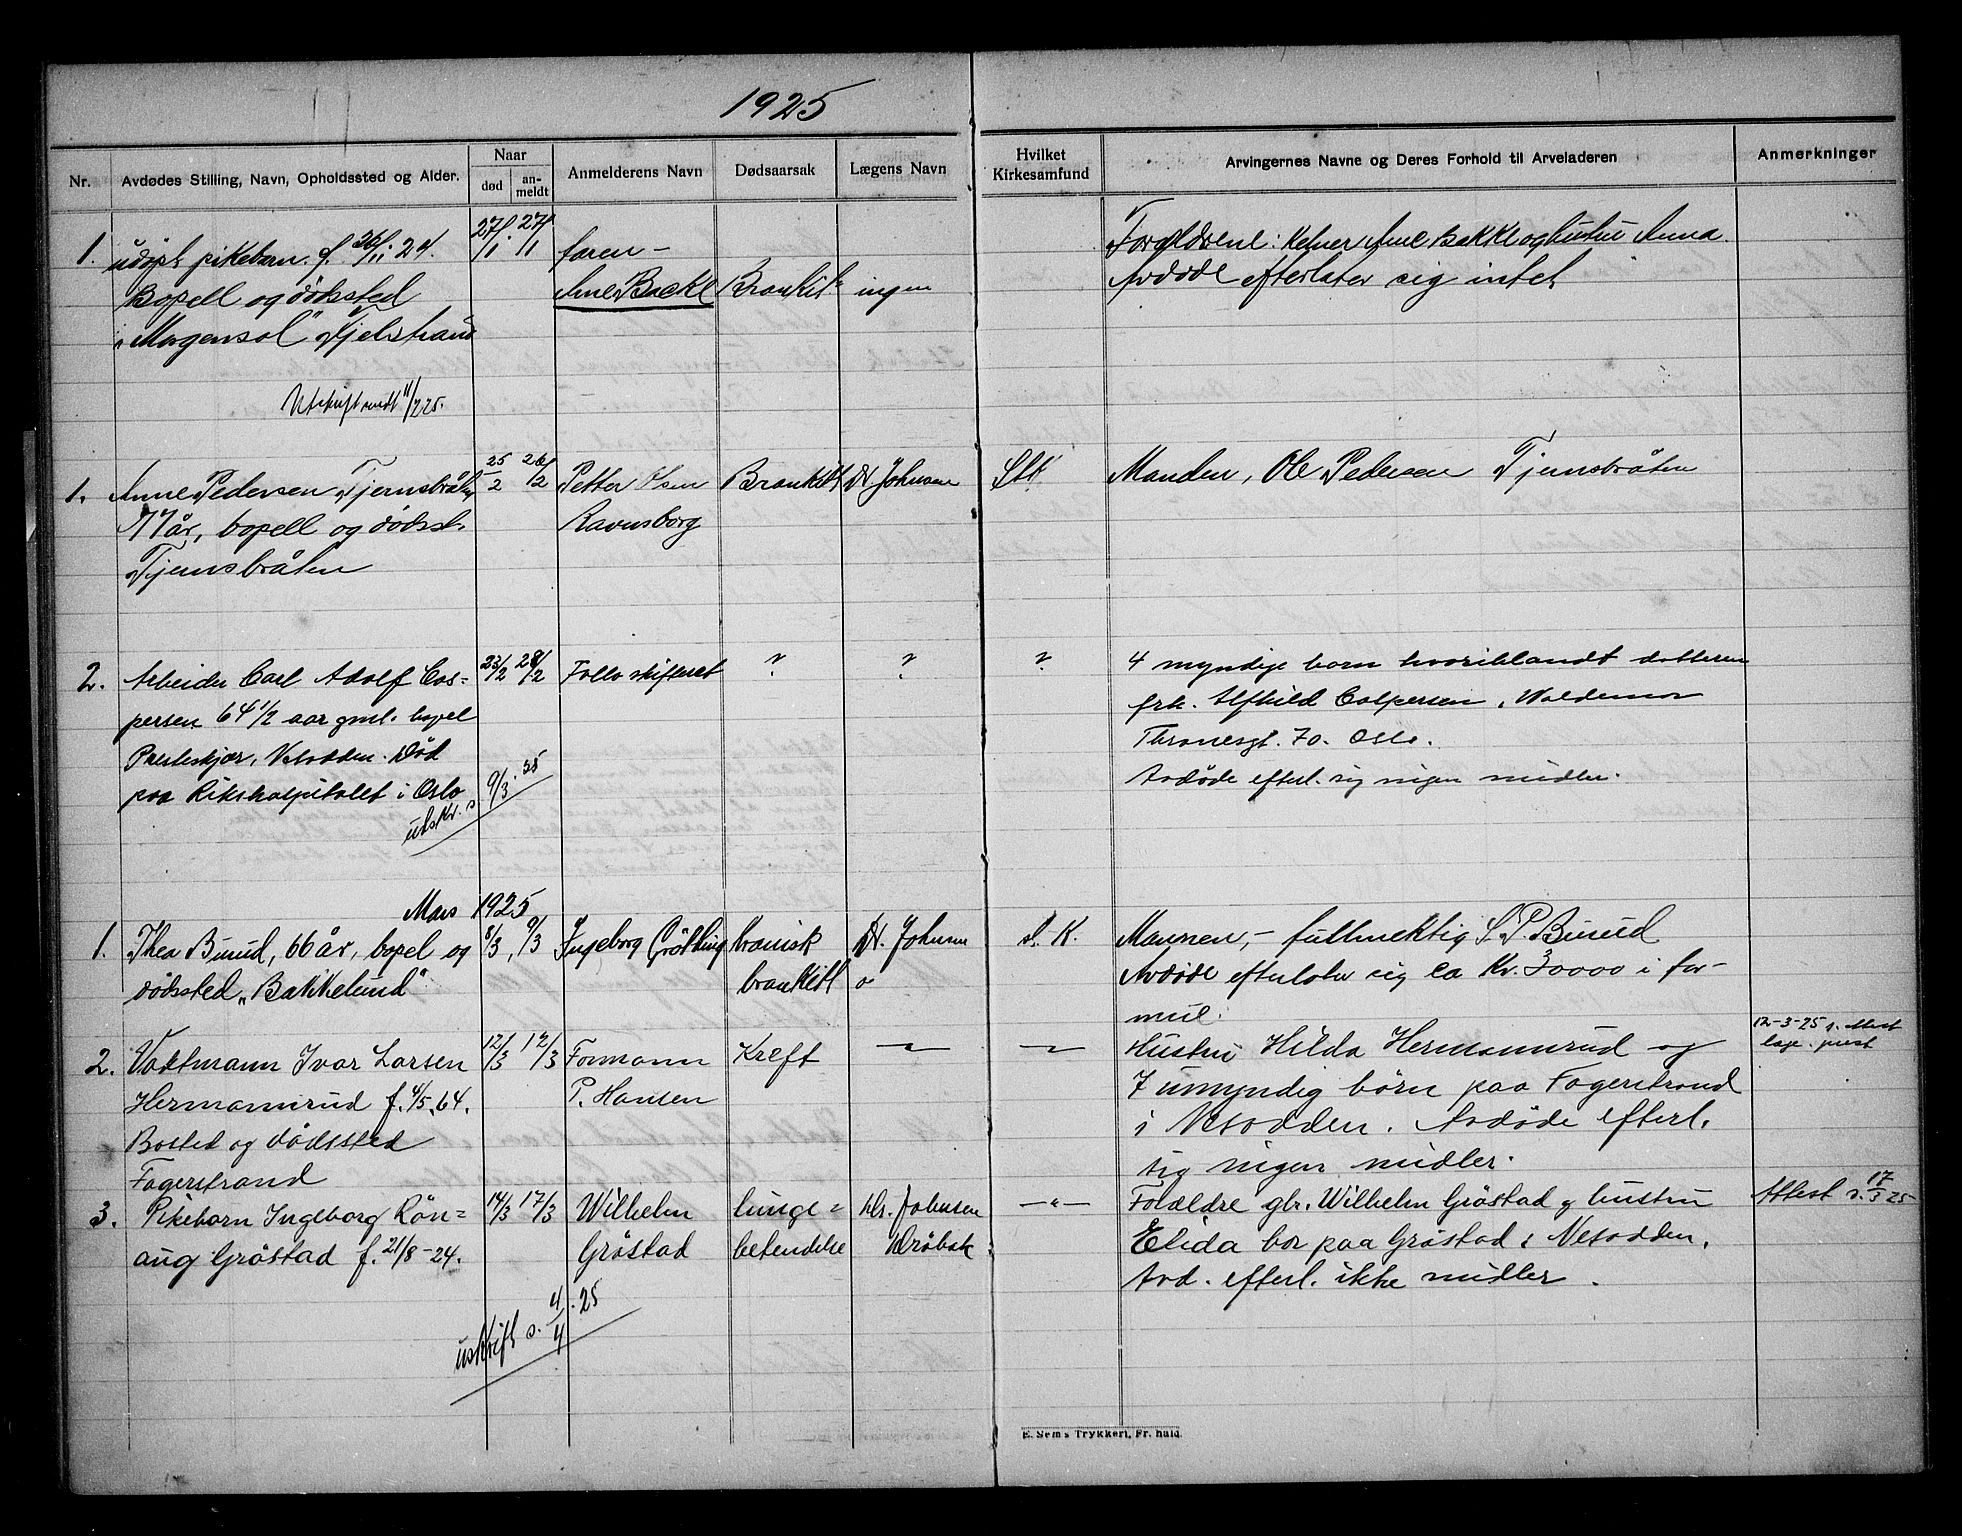 1925
Nr. Avdødes Stilling, Navn, Opholdssted og Alder. Naar død an-meldt Anmelderens Navn Dødsaarsak Lægens Navn Hvilket Kirkesamfund Arvingernes Navne og Deres Forhold til Arveladeren Anmerkninger
1. udøpt pikebarn. f. 26/11 24. 27/1 27/1 faren - Forældrene: Kelner Arne Bakke og hustru Anna.
Bopell og dødssted Arne Bakke Bronkit ingen Avdøde efterlater sig intet
"Morgensol" Fjelstrand
Utskrift sendt 11/2 25.
1. Anne Pedersen Tjernsbråten 25/2 26/2 Petter Olsen Bronkitt Dr. Johnsen Stk. Manden, Ole Pedersen Tjernsbråten
77 år, bopell og dødsst. Ravnsborg
Tjernsbråten
2. Arbeider Carl Adolf Cas= 23/2 28/2 Follo skifteret ? ? ? 4 myndige barn hvoriblandt datteren
persen 64 1/2 aar gml. bopel frk. Alfhild Caspersen, Waldemar
Presteskjær, Nesodden. Død Thranesgt. 70. Oslo.
paa Rikshospitalet i Oslo Avdøde efterl. sig ingen midler.
utskr. s 9/3. 25
Mars 1925
1. Thea Buud, 66 år, bopel og 8/3, 9/3 Ingeborg Grøtling kronisk Dr. Johnsen S. K. Mannen, - fullmektig S. P. Buud
dødssted "Bakkelund" bronkitt Avdøde efterlater sig ca Kr. 30000 i for-
mue.
2. Vaktmann Ivar Larsen 12/3 12/3 Formann Kreft —"— —"— Hustru Hilda Hermannrud og 12-3-25 s. attest
Hermannrud f. 4/5. 64. P. Hansen 7 umyndig børn paa Fagerstrand
Bosted og dødssted i Nesodden. Avdøde efterl.
Fagerstrand sig ingen midler.
3. Pikebarn Ingeborg Rön= 14/3 17/3 Wilhelm lunge= Dr. Johnsen —"— Forældre gbr. Wilhelm Gröstad og hustru Attest s. 17/3 25
aug Gröstad f. 21/8-24. Gröstad betendelse Dröbak Elida bor paa Gröstad i Nesodden.
Avd. efterl. ikke midler.
uskrift s. 4/4. 25
E. Sem's Trykkeri, Fr.hald.